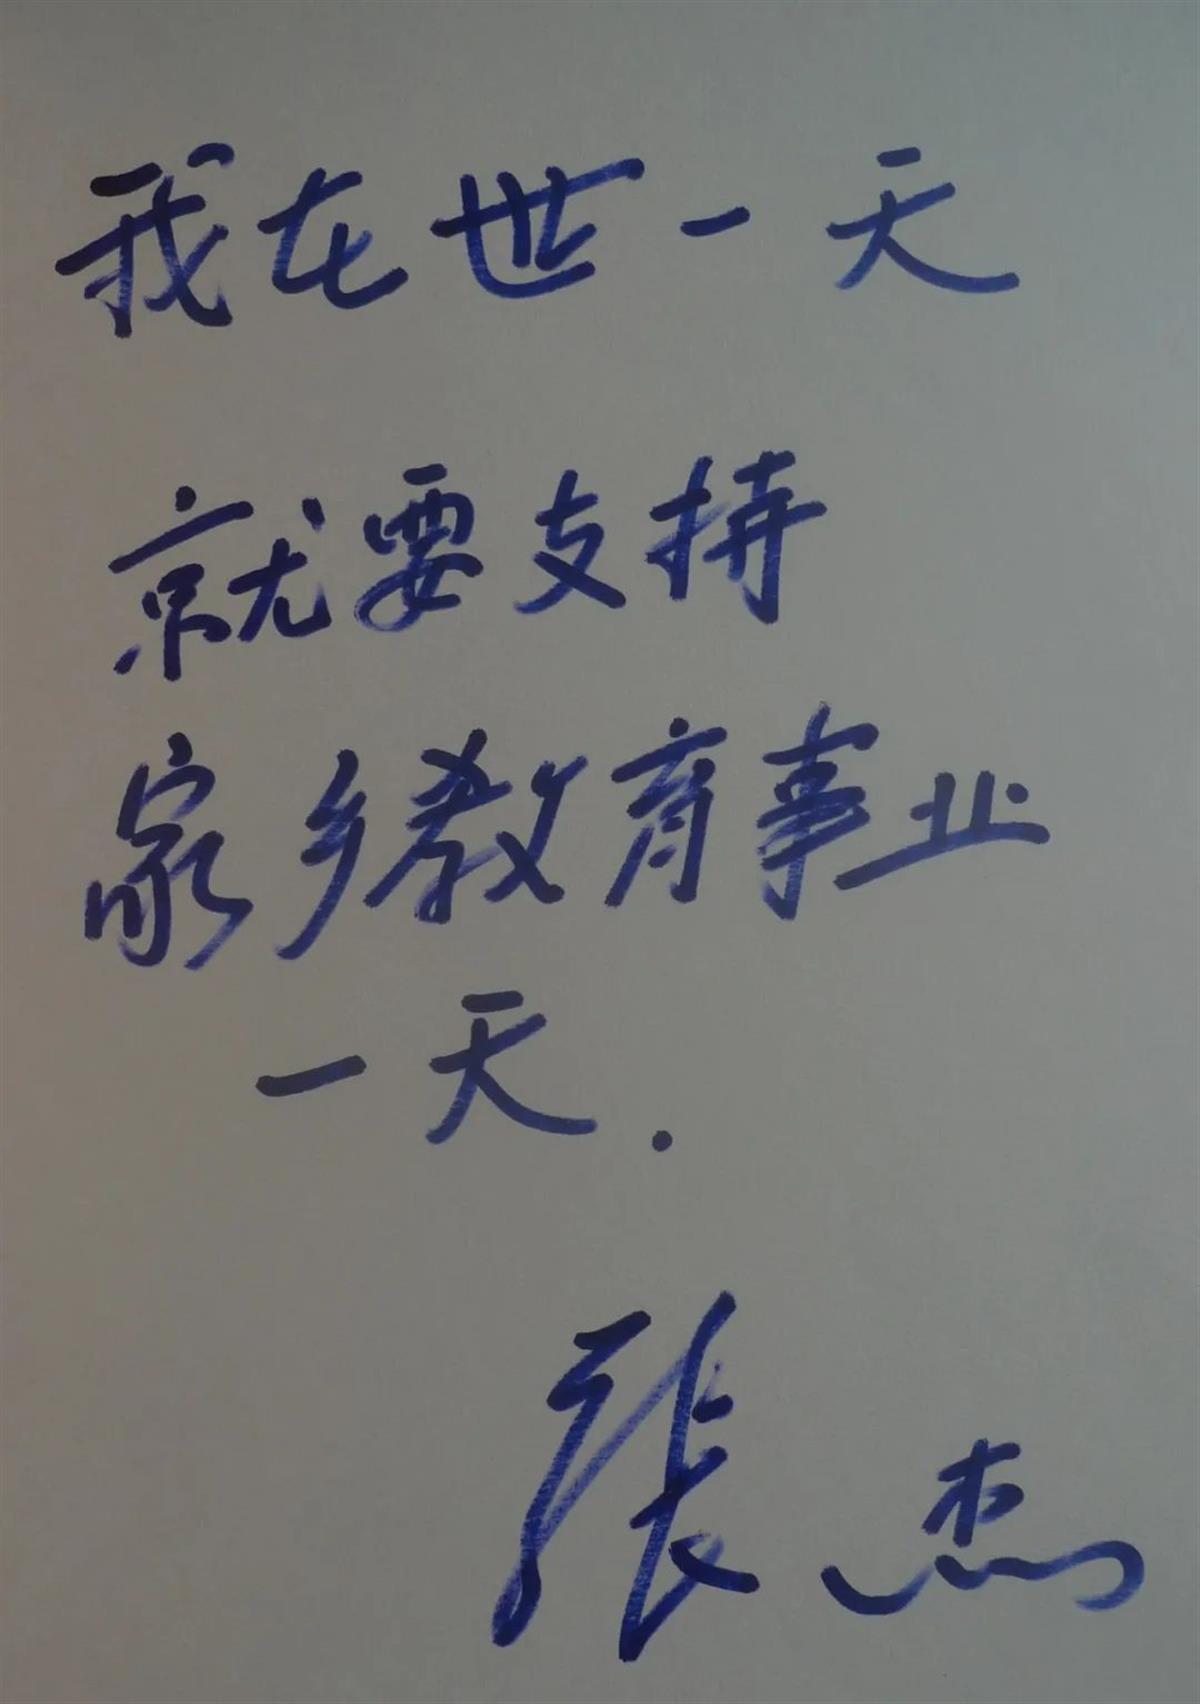 我在世一天
就要支持
家乡教育事业
一天.
張杰